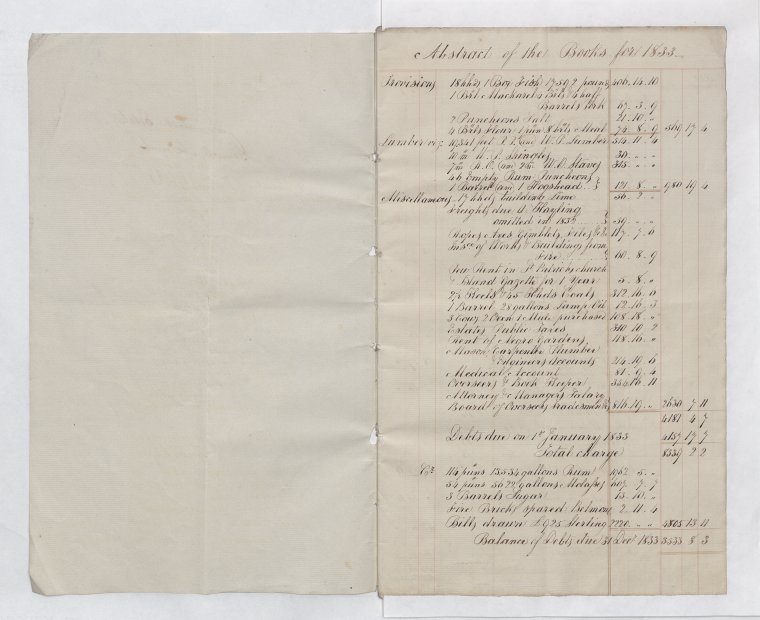 Abstract of the Books for 1833
Provisions 18 hhds 1 Box Fish 17592 pounds 406.14.10
1 Brl Mackarel 4 Brls 4 half
Barrels Pork 67.3.9
2 Puncheons Salt 21.10.〃
4 Brls Flour 1 pun 8 brls Meal 74.8.9 569 17 4
Lumber viz W.P. Lumber 514.11.4
10 m W.P. Shingles 30.〃.〃
7 m R.O. W.O. Staves 315.〃.〃
46 Empty Rum Puncheons
1 Barrel 1 Hogshead 121.8.〃 980 19 4
Miscellanous 17 hhds building Lime 36.2.〃
Freights due
omitted in 1832 59.〃.〃
Ropes Axes Gimblets Files 117.7.6
Insce of Works & Buildings from
Fire 60.8.9
Pew Rent in church
& Island Gazette for 1 Year 5.8.〃
Coals 312.16.0
1 Barrel 28 gallons Lamp Oil 12.16.3
3 Cows 2 Oxen 1 Mule purchased 108.18.〃
Estates Public Taxes 310.10.2
Rent of Negro Gardens 118.16.〃
Mason Carpenter Plumber
Engineers Accounts 214.10.6
Medical Account 81.9.4
Overseers & Book Keeper 354.16.11
Attorney & Managers Salary
Board of Overseers Tradesmen 816.19.〃 2630 7 11
4181 4 7
Debts due on 1st January 1833 4157 17 7
Total charge 8339 2 2
Cr 114 puns 13534 gallons Rum 1962.5.〃
54 puns 5022 gallons Molasses 607.7.7
3 Barrels Sugar 13.10.〃
Fire Bricks spared Belmont 2.11.4
Bills drawn £925 Sterling 2220.〃.〃 4805 13 11
Balance of Debts due 31 Decr 1833 3533 8 3